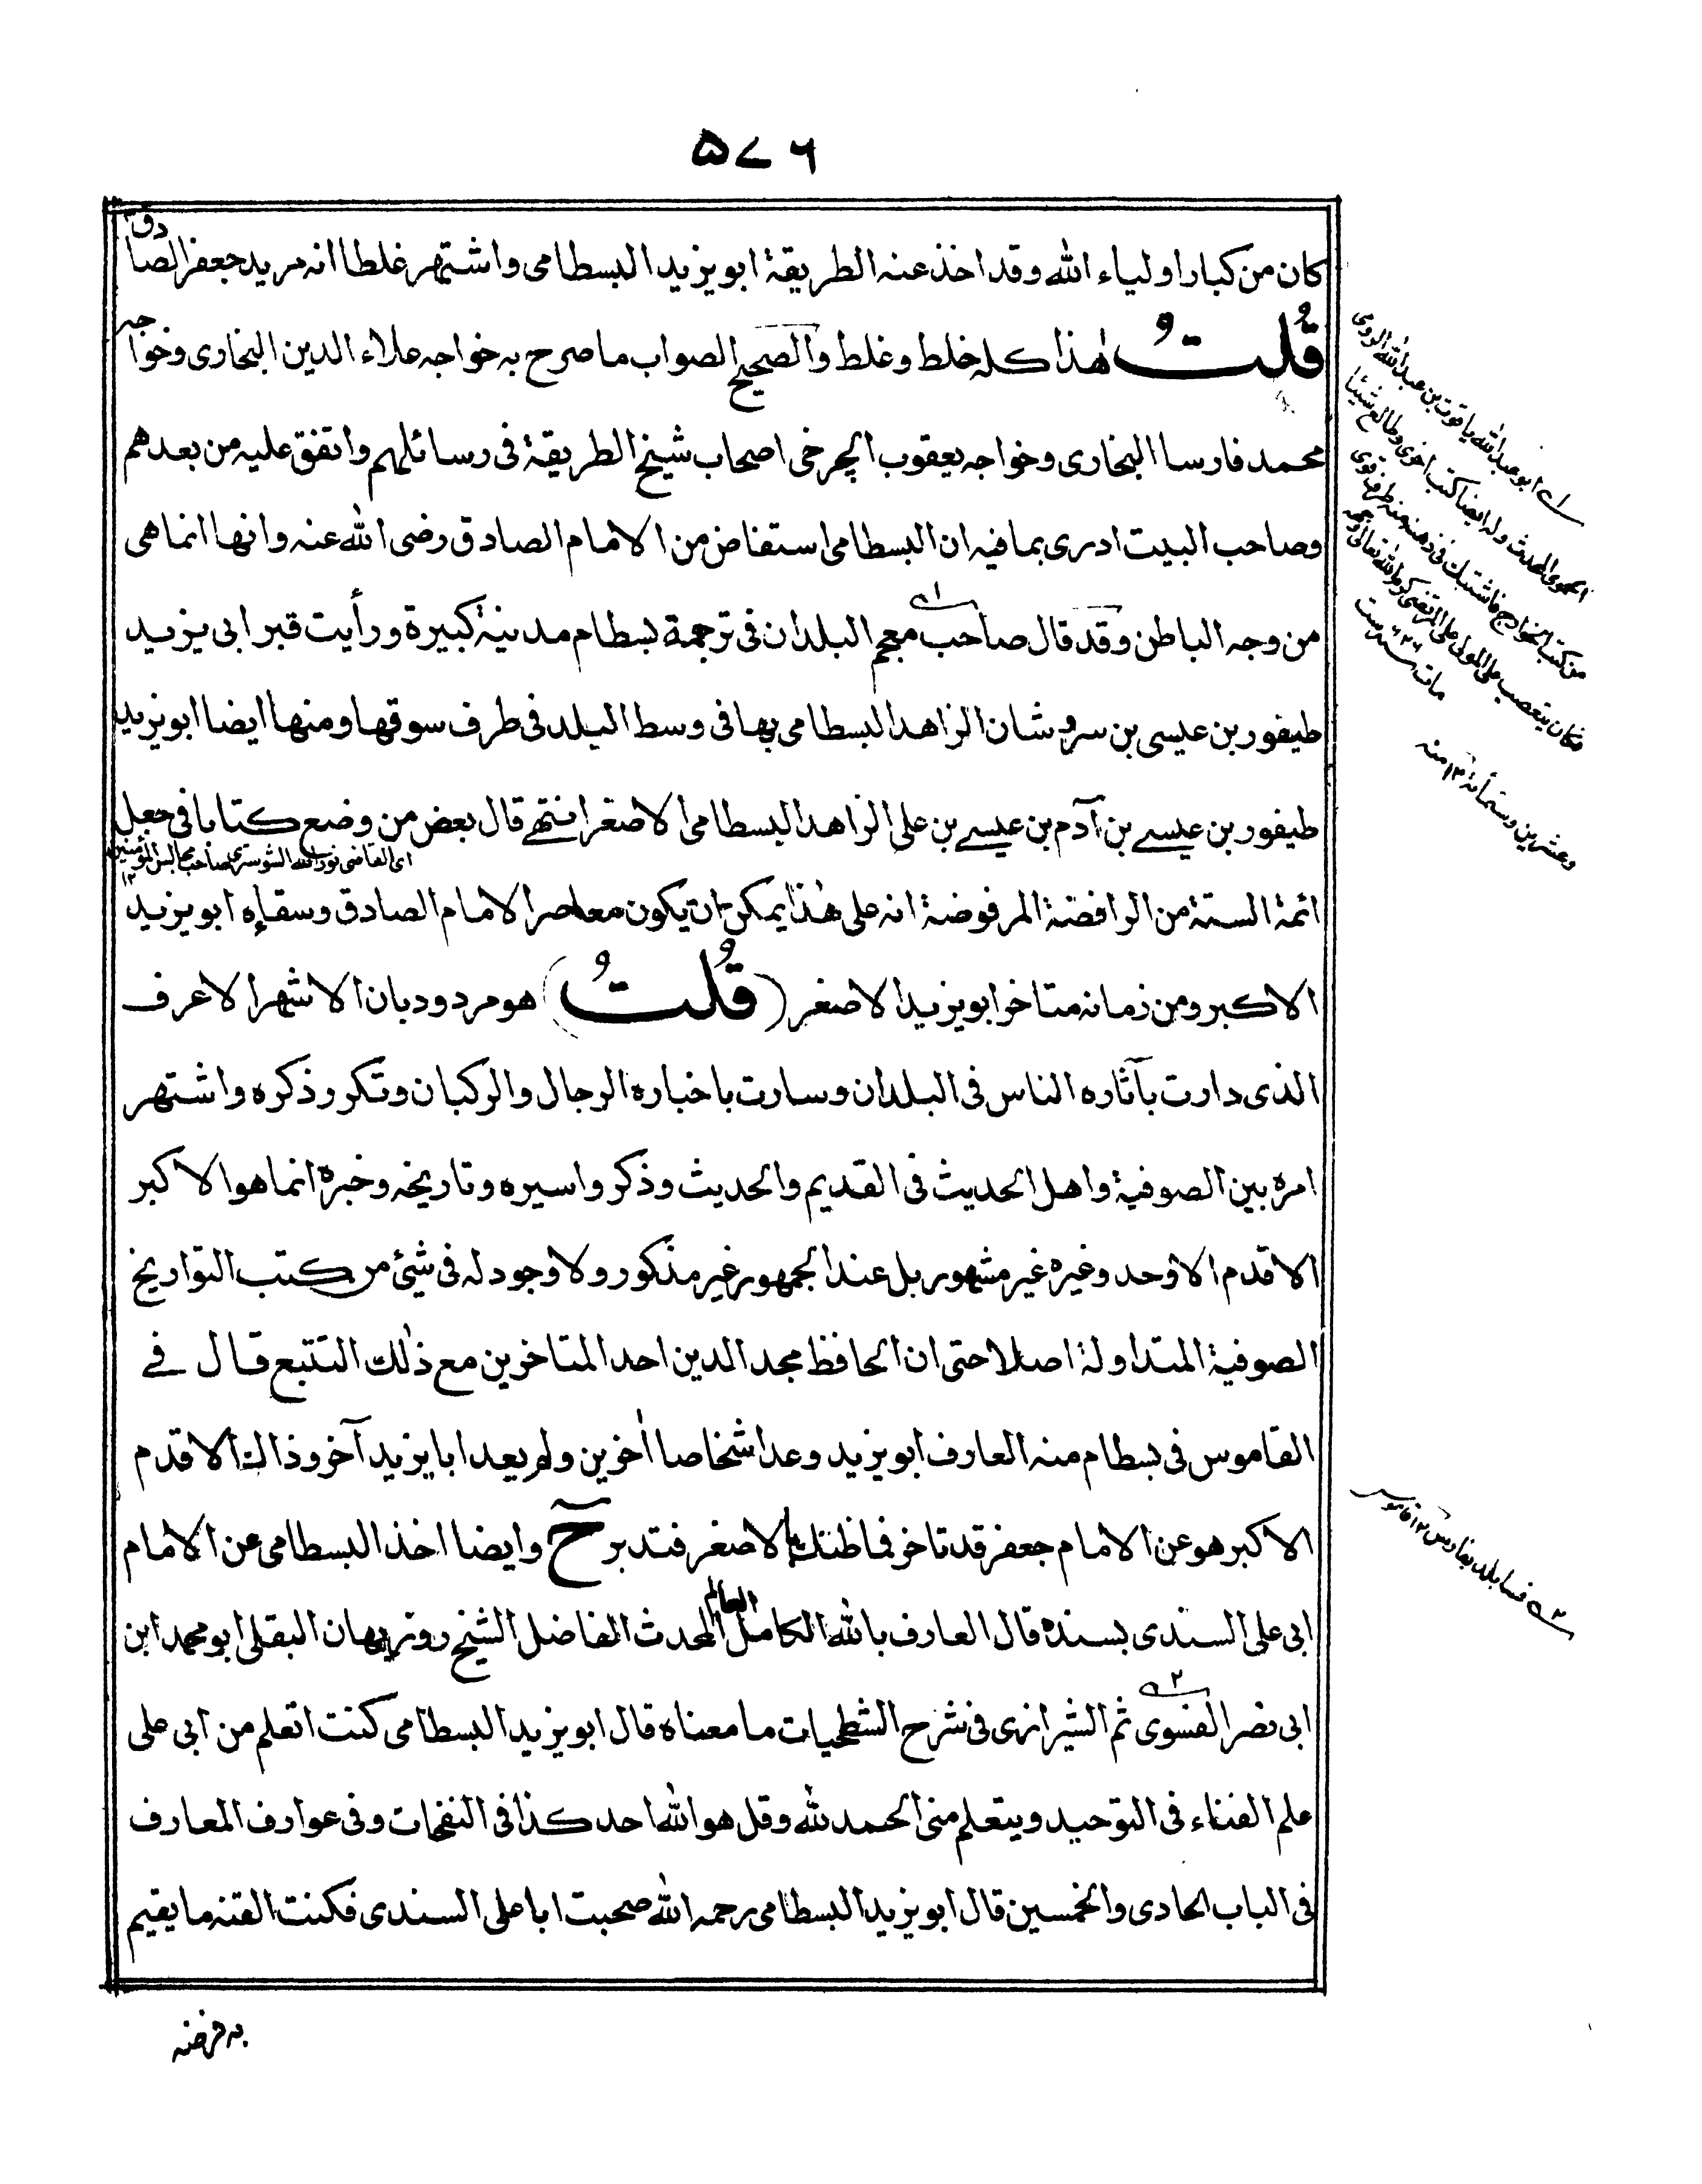 ۵۷۶
كان من كبار اولياء الله وقد اخذ عنه الطريقة ابو يزيد البسطامى واشتهر غلطا انه مريد جعفر الصادق
قُلتُ هٰذا كله خلط وغلط والصحيح الصواب ما صرح به خواجه علاء الدين البخارى وخواجه
محمد فارسا البخارى وخواجه يعقوب الچرخى اصحاب شيخ الطريقة فى رسائلهم واتفق عليه من بعدهم
وصاحب البيت ادرى بما فيه ان البسطامى استفاض من الامام الصادق رضى الله عنه وانها انما هى
من وجه الباطن وقد قال صاحب معجم البلدان فى ترجمة بسطام مدينة كبيرة ورأيت قبر ابى يزيد
طيفور بن عيسى بن سروشان الزاهد البسطامى بها فى وسط البلد فى طرف سوقها ومنها ايضا ابو يزيد
طيفور بن عيسے بن آدم بن عيسے بن على الزاهد البسطامى الاصغر انتهے قال بعض من وضع كتابا فى جعل
اى القاضى نور الله الشوسترى صاحب مجالس المؤمنين ١٢
ائمة الستة من الرافضة المرفوضة انه على هٰذا يمكن ان يكون معاصر الامام الصادق وسقاءه ابو يزيد
الاكبر ومن زمانه متاخر ابو يزيد الاصغر (قُلتُ) هو مردود بان الاشهر الاعرف
الذى دارت بآثاره الناس فى البلدان وسارت باخباره الرجال والركبان وتكرر ذكره واشتهر
امره بين الصوفية واهل الحديث فى القديم والحديث وذكروا سيره وتاريخه وخبره انما هو الاكبر
الاقدم الاوحد وغيره غير مشهور بل عند الجمهور غير مذكور ولا وجود له فى شئ من كتب التواريخ
الصوفية المتداولة اصلا حتى ان الحافظ مجد الدين احد المتاخرين مع ذٰلك التتبع قال فے
القاموس فى بسطام منه العارف ابو يزيد وعد اشخاصا اٰخرين ولم يعد ابا يزيد آخر وذالك الاقدم
الاكبر هو عن الامام جعفر قد تاخر فما ظنك بالاصغر فتدبر ح وايضا اخذ البسطامى عن الامام
ابى على السندى بسنده قال العارف بالله الكامل العالم المحدث الفاضل الشيخ روزبهان البقلى ابو محمد ابن
ابى نصر الفسوى ثم الشيرازى فى شرح الشطحيات ما معناه قال ابو يزيد البسطامى كنت اتعلم من ابى على
علم الفناء فى التوحيد ويتعلم منى الحمد لله وقل هو الله احد كذا فى النفحات وفى عوارف المعارف
فى الباب الحادى والخمسين قال ابو يزيد البسطامى رحمه الله صحبت ابا على السندى فكنت القنه ما يقيم
به فرضه
١ اى ابو عبد الله ياقوت بن عبد الله الرومى
الحموى المحدث وله ايضا كتب اخرى وطالع شيئا
من كتب الخوارج فاشتبك فى ذهنه منه طرف قوى
فكان يتعصب على المولى على المرتضى كرم الله تعالى وجهه
مات سنه ٦٢٦ ست
وعشرين وستمائة ١٢ منه
٢ فسا بلد بفارس ١٢ قاموس